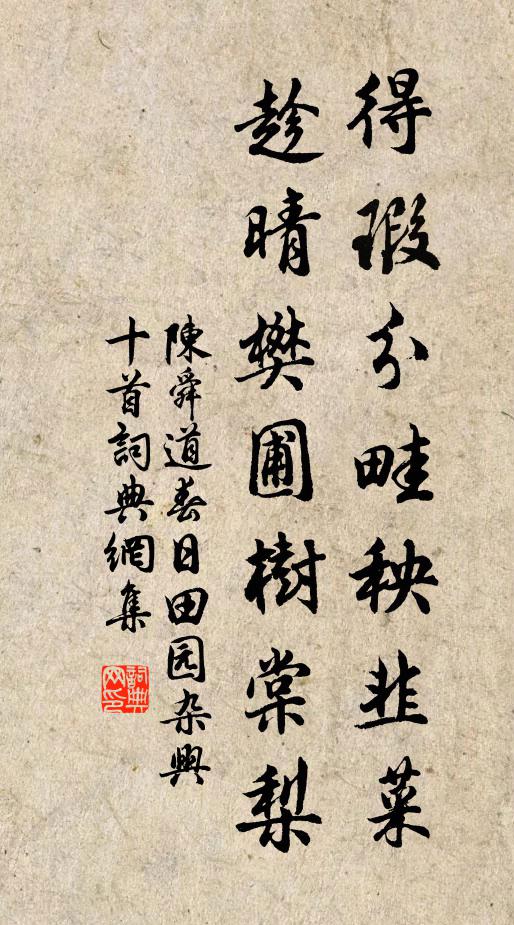 得瑕分畦秧韭菜
趁晴樊圃樹棠梨
陳舜道春日田园杂興
十首詞典網集
詞典
网印